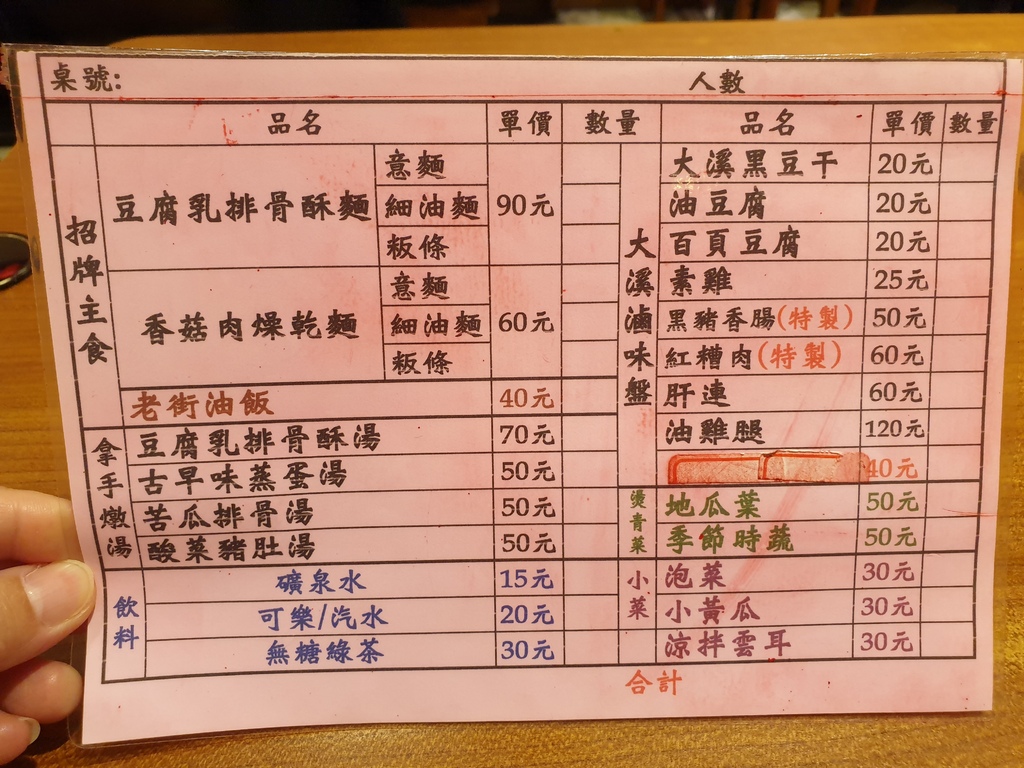 桌號: 人數
品名 單價 數量 品名 單價 數量
招牌主食
豆腐乳排骨酥麵 意麵 細油麵 粄條 90元
香菇肉燥乾麵 意麵 細油麵 粄條 60元
老街油飯 40元
拿手燉湯
豆腐乳排骨酥湯 70元
古早味蒸蛋湯 50元
苦瓜排骨湯 50元
酸菜豬肚湯 50元
飲料
礦泉水 15元
可樂/汽水 20元
無糖綠茶 30元
大溪滷味盤
大溪黑豆干 20元
油豆腐 20元
百頁豆腐 20元
素雞 25元
黑豬香腸(特製) 50元
紅糟肉(特製) 60元
肝連 60元
油雞腿 120元
40元
燙青菜
地瓜葉 50元
季節時蔬 50元
小菜
泡菜 30元
小黃瓜 30元
涼拌雲耳 30元
合計